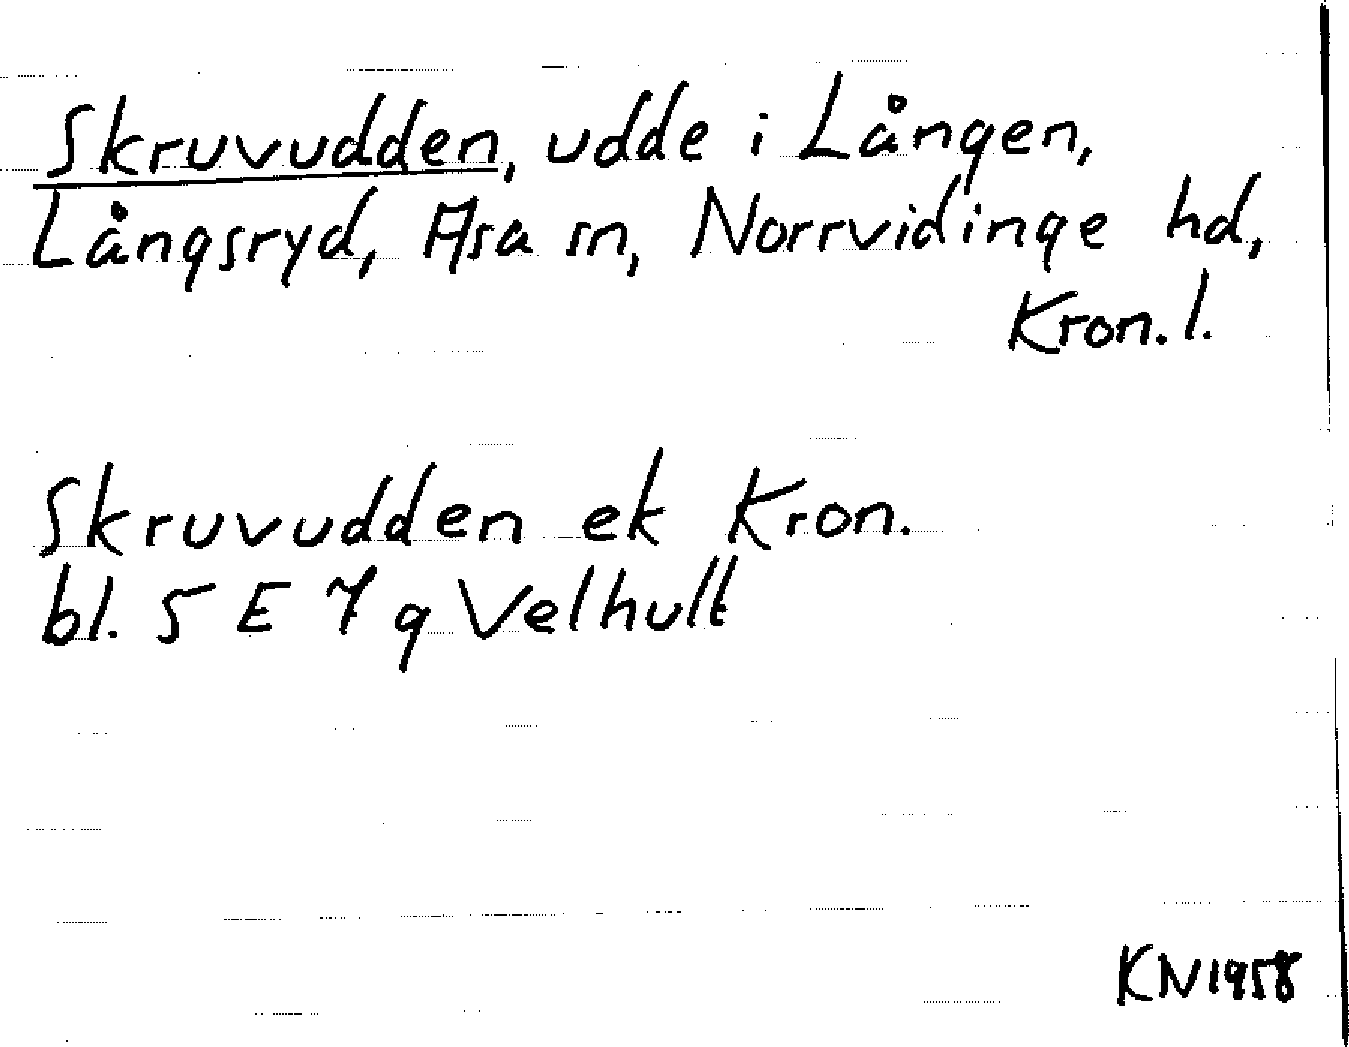 Skruvudden, udde i Lången,
Långsryd, Asa sn, Norrvidinge hd,
Kron. l.
Skruvudden ek Kron.
bl. 5 E 7 g Velhult
KN 1958